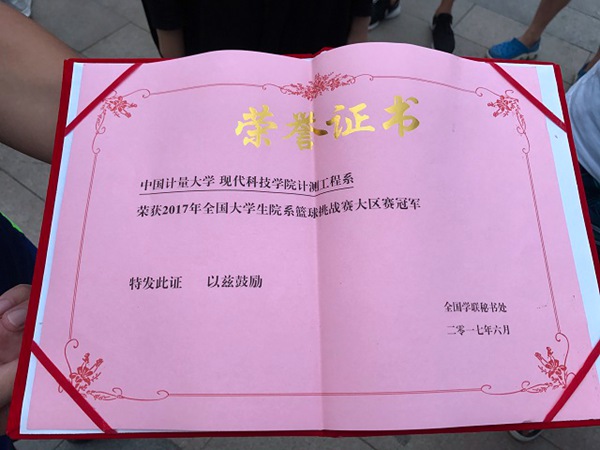 荣誉证书
中国计量大学 现代科技学院计测工程系
荣获2017年全国大学生院系篮球挑战赛大区赛冠军
特发此证 以兹鼓励
全国学联秘书处
二零一七年六月